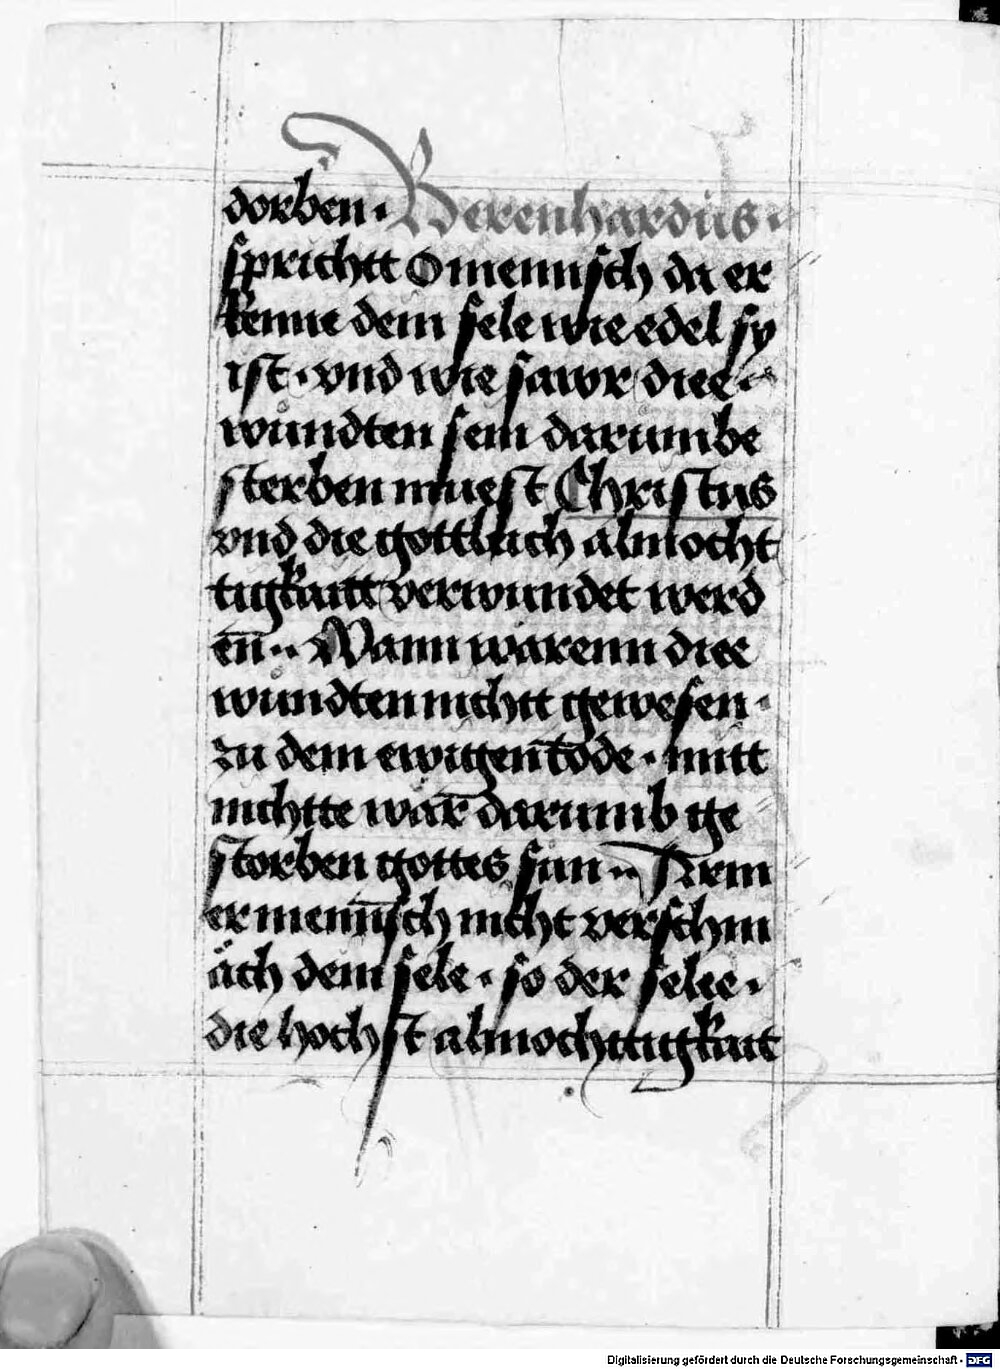 dorben · Berenhardus ·
sprichtt O mennsch da er
kenne dein sele wie edel sy
ist · vnd wie sawr diee ·
wundten sein darumbe
sterben muest Christus
vnd die gottlich almocht
tigkaitt verwundet werd
en̄ ·· Wann warenn diee
wundten nichtt gewesen ·
zu dem ewigen̄ tode · mitt
nichtte war darumb ge
storben gottes sun ·· Arm
er mennsch nicht verschm
äch dein sele · so der selee ·
die hochst almochttigkait
Digitalisierung gefördert durch die Deutsche Forschungsgemeinschaft - DFG